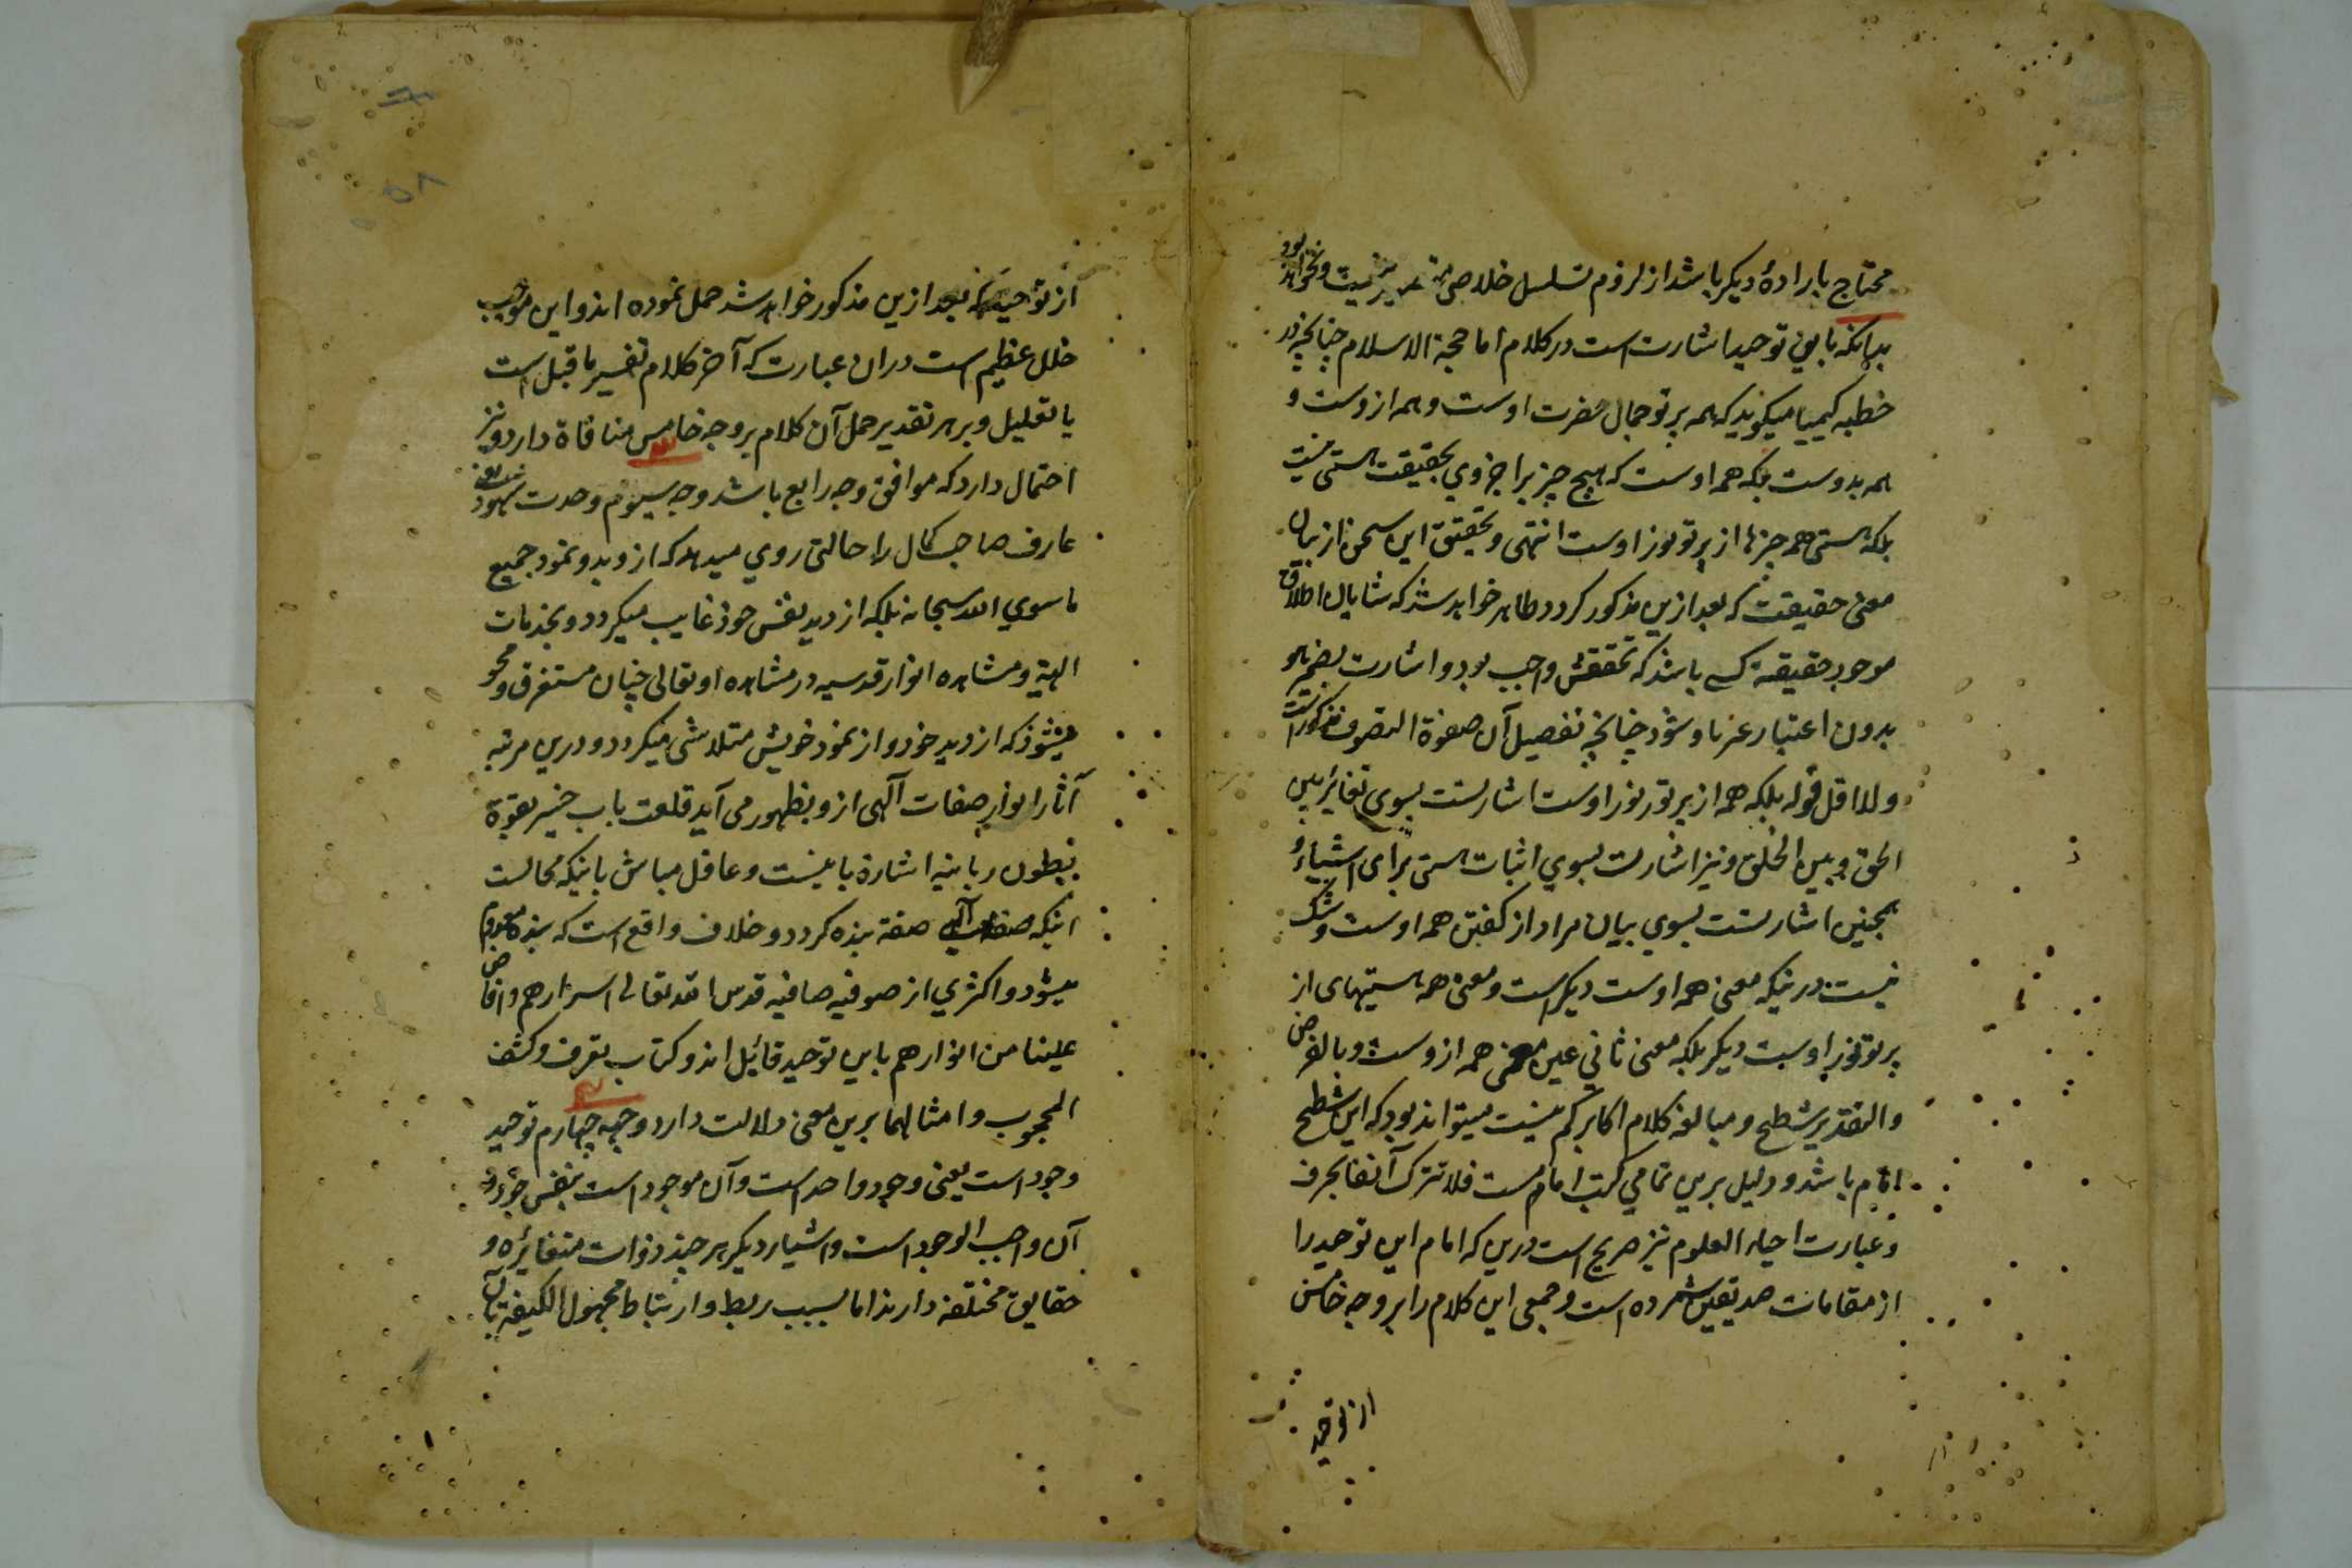 محتاج بارادهٔ دیکر باشد از لزوم تسلسل خلاصی نیست و نخواهد بود
بدانکه باین توحید اشارت است در کلام امام حجة الاسلام چنانچه در
خطبه کیمیا میکوید که همه پرتو جمال حضرت اوست و همه ازوست و
همه بدوست بلکه همه اوست که هیچ چیز را جزوی بحقیقت هستی نیست
بلکه هستی همه چیزها از پرتو نور اوست انتهی و تحقیق این سخن از بیان
معنی حقیقت که بعد ازین مذکور کردد ظاهر خواهد شد که شایان اطلاق
موجود حقیقة کسی باشد که تحققش واجب بود و اشارت بضم هو
بدون اعتبار غیر باو شود چنانچه تفصیل آن صفوة التصوف مذکورست
ولا اقل قوله بلکه همه از پرتو نور اوست اشارتست بسوی تغایر بین
الحق و بین الخلق و نیز اشارتست بسوی اثبات هستی برای اشیاء و
همچنین اشارتست بسوی بیان مراد از کفتن همه اوست و شک
نیست درینکه معنی همه اوست دیکر است و معنی همه هستیهای از
پرتو نور اوست دیکر بلکه معنی ثانی عین معنی همه ازوست و بالفرض
والتقدیر شطح و مبالغه کلام اکابر کم نیست میتواند بود که این شطح
امام باشد و دلیل برین تمامی کتب امام ست فلا نترک آنفا بحرف
و عبارت احیاء العلوم نیز صریح است درین که امام این توحید را
از مقامات صدیقین شمرده است و جمعی این کلام را بر وجه خامس
از توحید
از توحید که بعد ازین مذکور خواهد شد حمل نموده اند و این موجب
خلل عظیم است دران عبارت که آخر کلام تفسیر ماقبل است
یا تعلیل و بر هر تقدیر حمل آن کلام بر وجه خامس منافاة دارد و نیز
احتمال دارد که موافق وجه رابع باشد وجه سیوم وحدت شهود یعنی
عارف صاحب کمال را حالتی روی میدهد که از وید و نمود جمیع
ماسوی الله سبحانه بلکه از دید نفس خود غایب میکردد و بجذبات
الهیة و مشاهده انوار قدسیه در مشاهده او تعالی چنان مستغرق و محو
میشود که از دید خود و از نمود خویش متلاشی میکردد و درین مرتبه
آثار انوار صفات آلهی ازو بظهور می آید قلعت باب خیبر بقوة
ربانیه اشارة باینست و غافل مباش باینکه محالست
اینکه صفات آلهی صفة بنده کردد و خلاف واقع است که بنده معدوم
میشود و اکثری از صوفیه صافیه قدس الله تعالی اسرارهم و افاض
علینا من انوارهم باین توحید قائل اند و کتاب تعرف و کشف
المحجوب و امثالهما برین معنی دلالت دارد وجهه چهارم توحید
وجود است یعنی وجود واحد است و آن موجود است بنفس خود و
آن واجب الوجود است و اشیاء دیکر هر چند ذوات متغائره و
حقایق مختلفه دارند اما بسبب ربط و ارتباط مجهول الکیفیة بآن